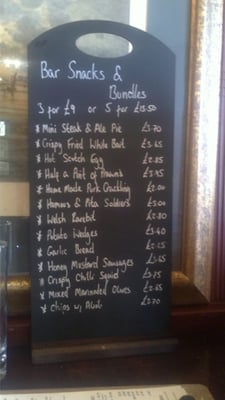 Bar Snacks &
Bundles
3 for £9 or 5 for £13.50
* Mini Steak & Ale Pie £3.70
* Crispy Fried White Bait £3.65
* Hot Scotch Egg £2.85
* Half a Pint of Prawns £3.95
* Home Made Pork Crackling £2.00
* Homous & Pita Soldiers £3.00
* Welsh Rarebit £2.80
* Potato Wedges £3.40
* Garlic Bread
* Honey Mustard Sausages £3.65
* Crispy Chilli Squid
* Mixed Marinated Olives £2.65
* Chips w/ Aioli £2.70